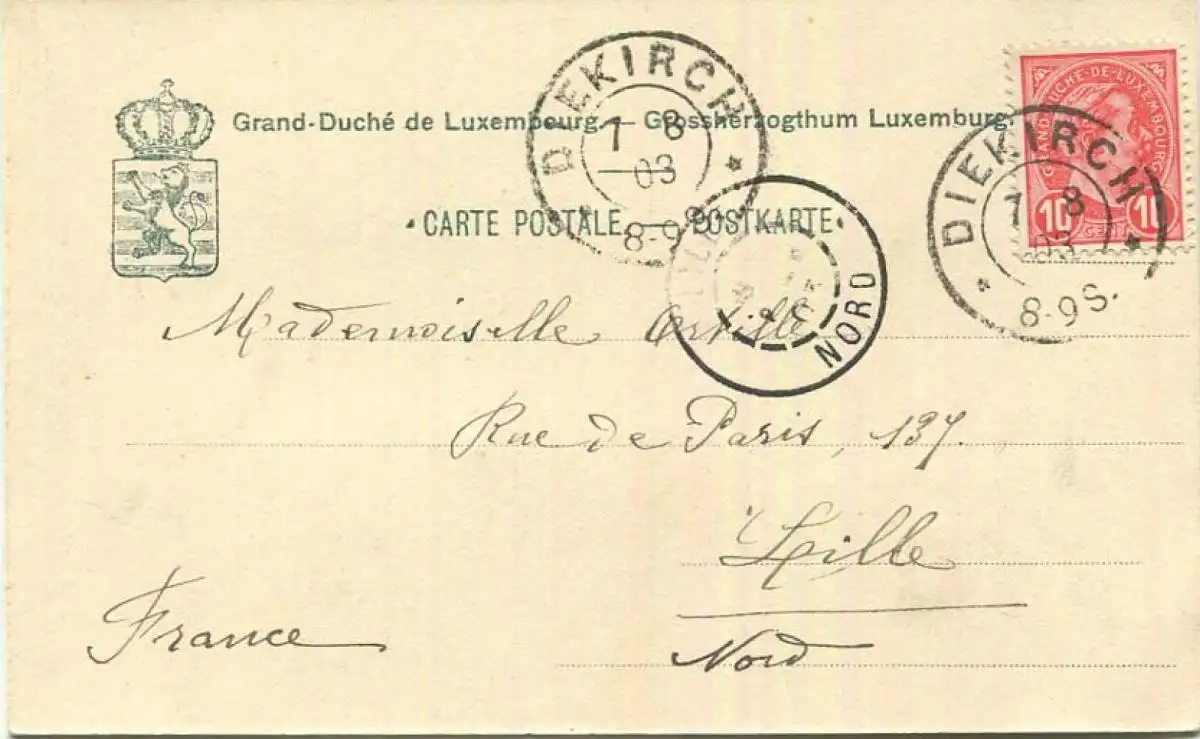 Grand-Duché de Luxembourg. — Grossherzogthum Luxemburg.
CARTE POSTALE — POSTKARTE
DIEKIRCH
7 8
03
8-9S
GRAND DUCHÉ-DE-LUXEMBOURG
10 10
DIEKIRCH
7 8
03
8-9S.
NORD
Mademoiselle
Rue de Paris, 137.
Lille
France
Nord